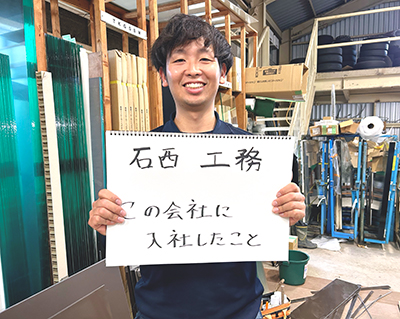 石酉 工務
この会社に
入社したこと